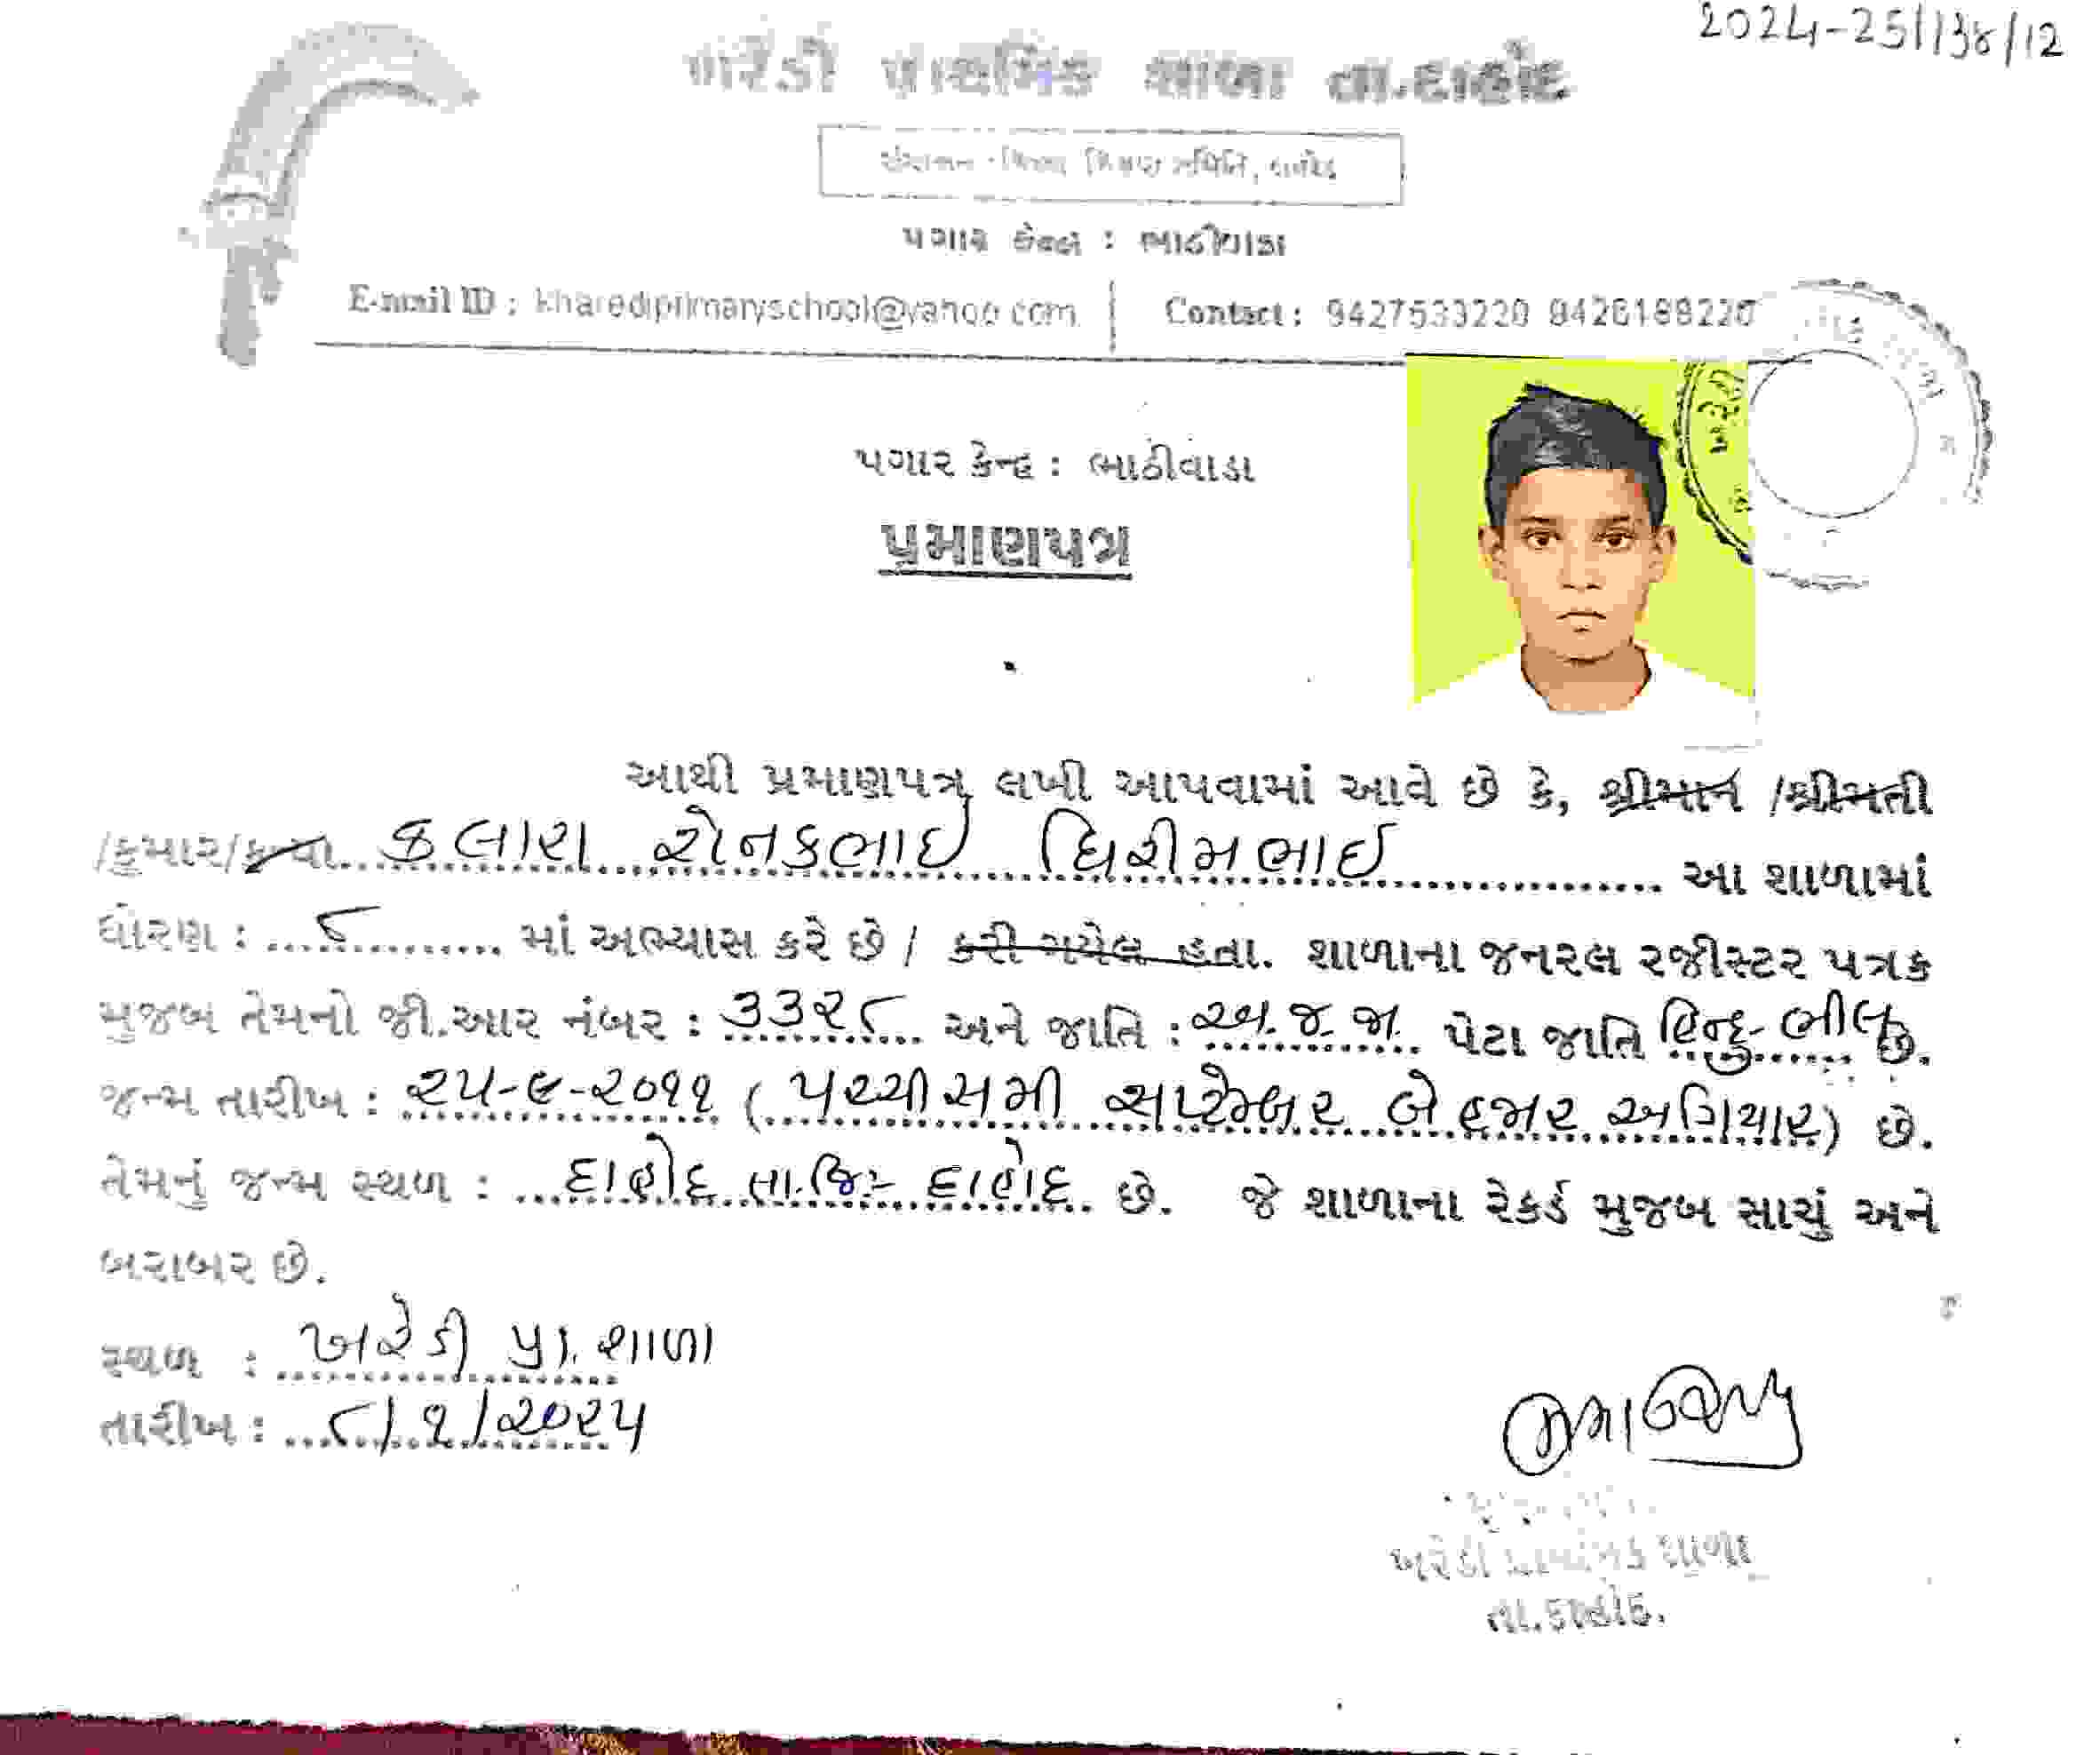 2024-25/138/12
ખરેડી પ્રાથમિક શાળા તા.દાહોદ
સંચાલન - જિલ્લા શિક્ષણ સમિતિ, દાહોદ
પગાર કેન્દ્ર : ભાઠીવાડા
E-mail ID : kharediprimaryschool@yahoo.com | Contact : 9427533220 9426188220
પગાર કેન્દ્ર : ભાઠીવાડા
પ્રમાણપત્ર
આથી પ્રમાણપત્ર લખી આપવામાં આવે છે કે, શ્રીમાન /શ્રીમતી
/કુમાર/કન્યા... કલારા રોનકભાઈ ધિરીમભાઈ ... આ શાળામાં
ધોરણ : ....૮.......... માં અભ્યાસ કરે છે / કરી ગયેલ હતા. શાળાના જનરલ રજીસ્ટર પત્રક
મુજબ તેમનો જી.આર નંબર : ૩૩૨૮ અને જાતિ : અ.જ.જા. પેટા જાતિ હિન્દુ-ભીલ છે.
જન્મ તારીખ : ૨૫-૯-૨૦૧૧ ( પચ્ચીસમી સપ્ટેમ્બર બે હજાર અગિયાર) છે.
તેમનું જન્મ સ્થળ : ... દાહોદ તા.જિ- દાહોદ છે. જે શાળાના રેકર્ડ મુજબ સાચું અને
બરાબર છે.
સ્થળ : ખરેડી પ્રા. શાળા
તારીખ : ૮/૧/૨૦૨૫
ખરેડી પ્રાથમિક શાળા
તા.દાહોદ.